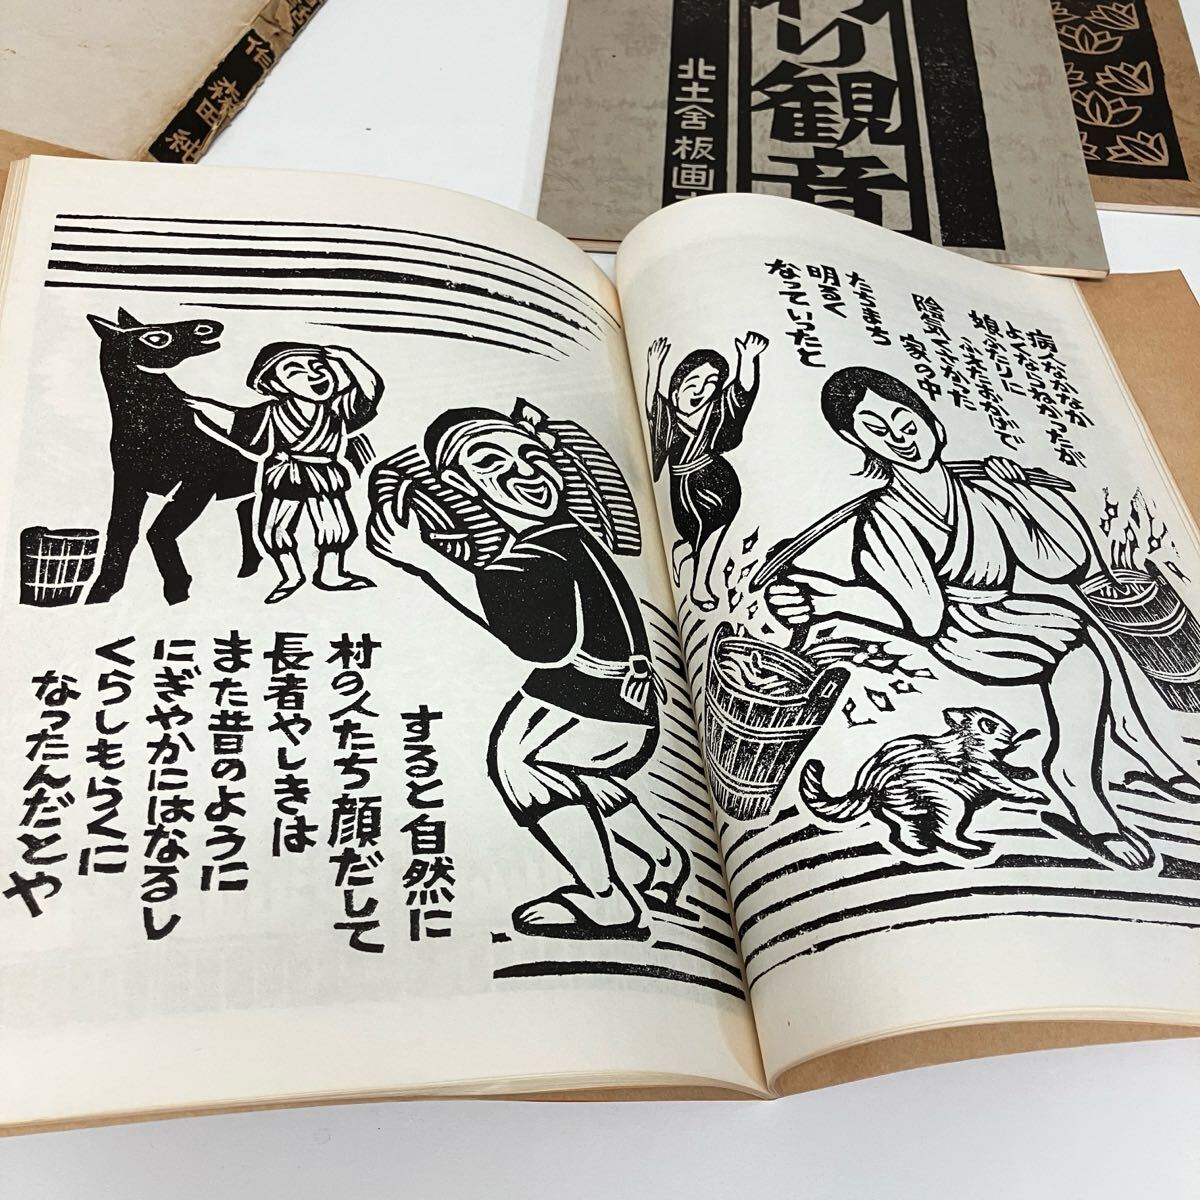 作 森田純
わり観音
北土舎板画
病人なかなか
よくならねかったが
娘ふたりに
ふえたおかげで
陰気くさかった
家の中
たちまち
明るく
なっていったと
すると自然に
村の人たち顔だして
長者やしきは
また昔のように
にぎやかにはなるし
くらしもらくに
なったんだとや